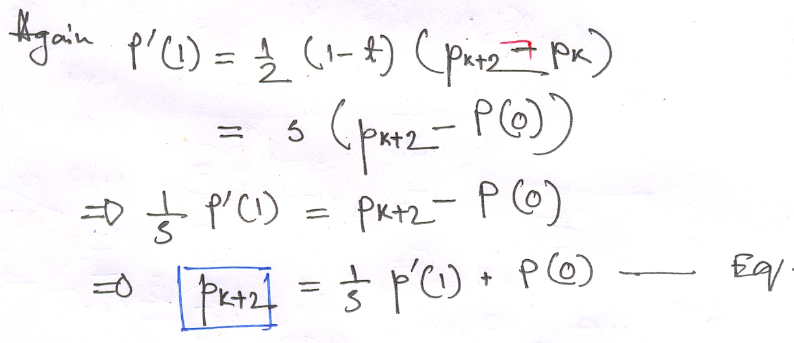 Again P'(1) = 1/2 (1-t) (Pk+2 - Pk)
= s (Pk+2 - P(0))
⇒ 1/s P'(1) = Pk+2 - P(0)
⇒ Pk+2 = 1/s P'(1) + P(0) — Eq.